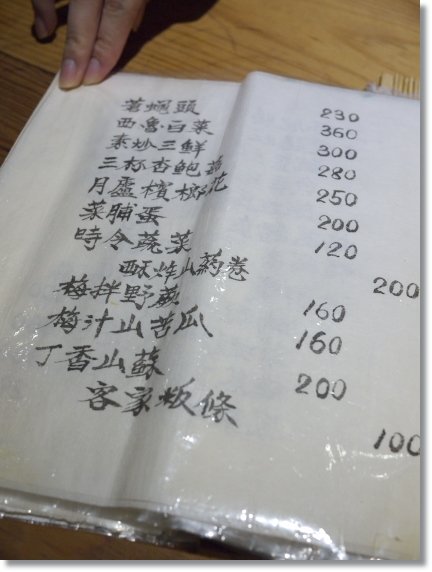 苍蠅頭 230
西魯白菜 360
素炒三鮮 300
三杯杏鮑菇 280
月盧檳榔花 250
菜脯蛋 200
時令蔬菜 120
酥炸山药卷 200
梅拌野蕨 160
梅汁山苦瓜 160
丁香山蘇 200
客家粄條 100